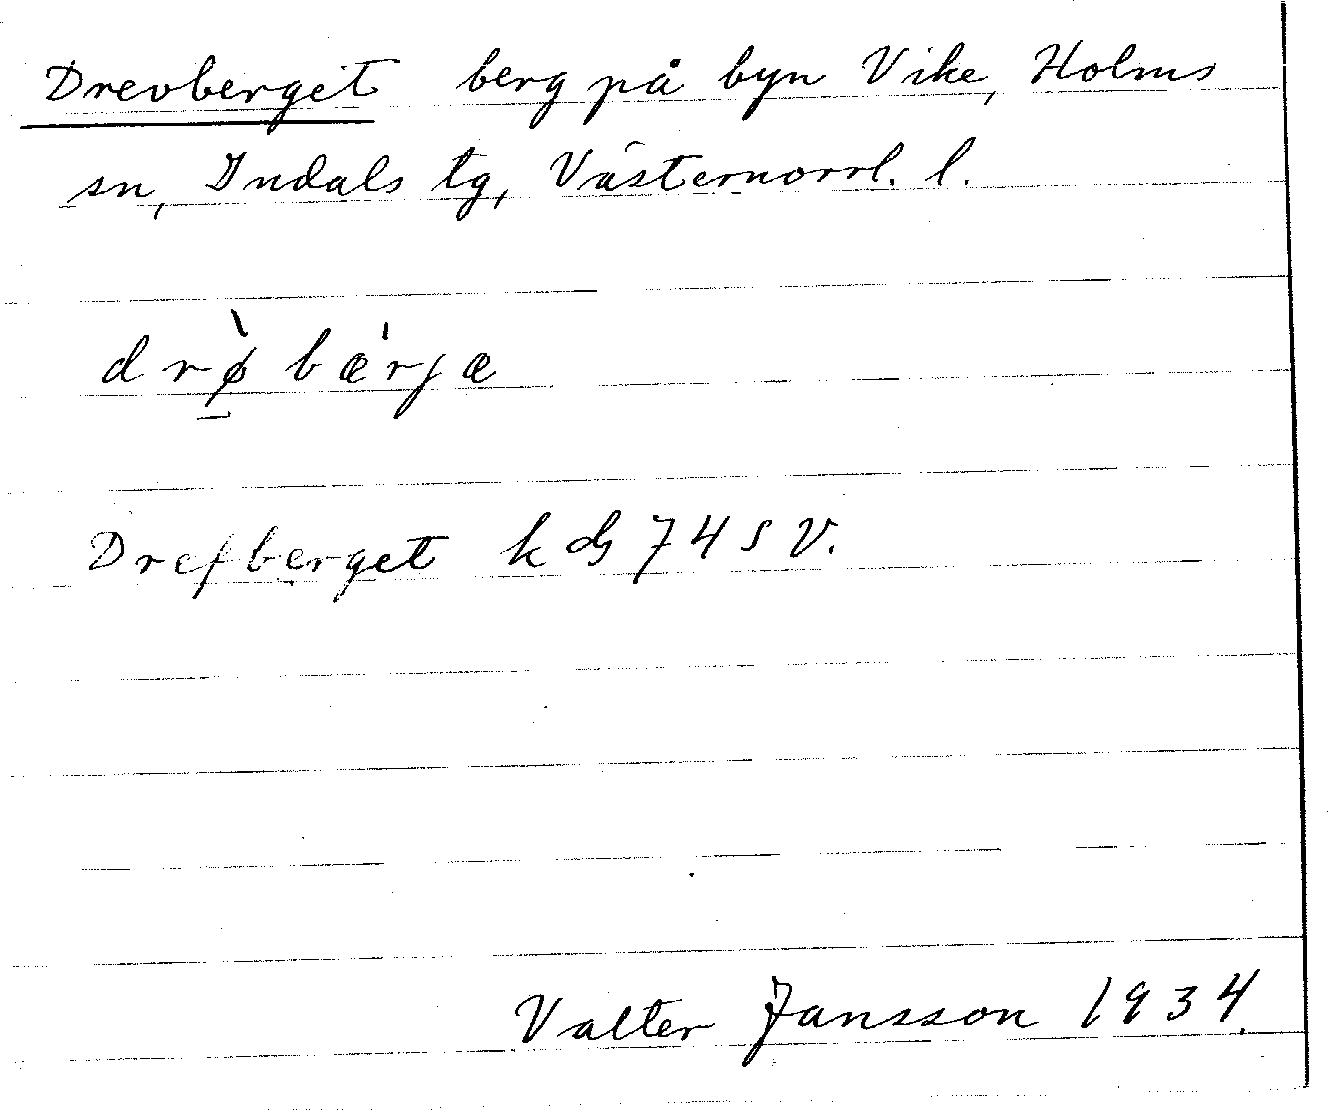 Drevberget berg på byn Vike, Holms
sn, Indals tg, Västernorrl. l.
drø̀bæ̍rjæ
Drefberget k dG 74 SV.
Valter Jansson 1934.